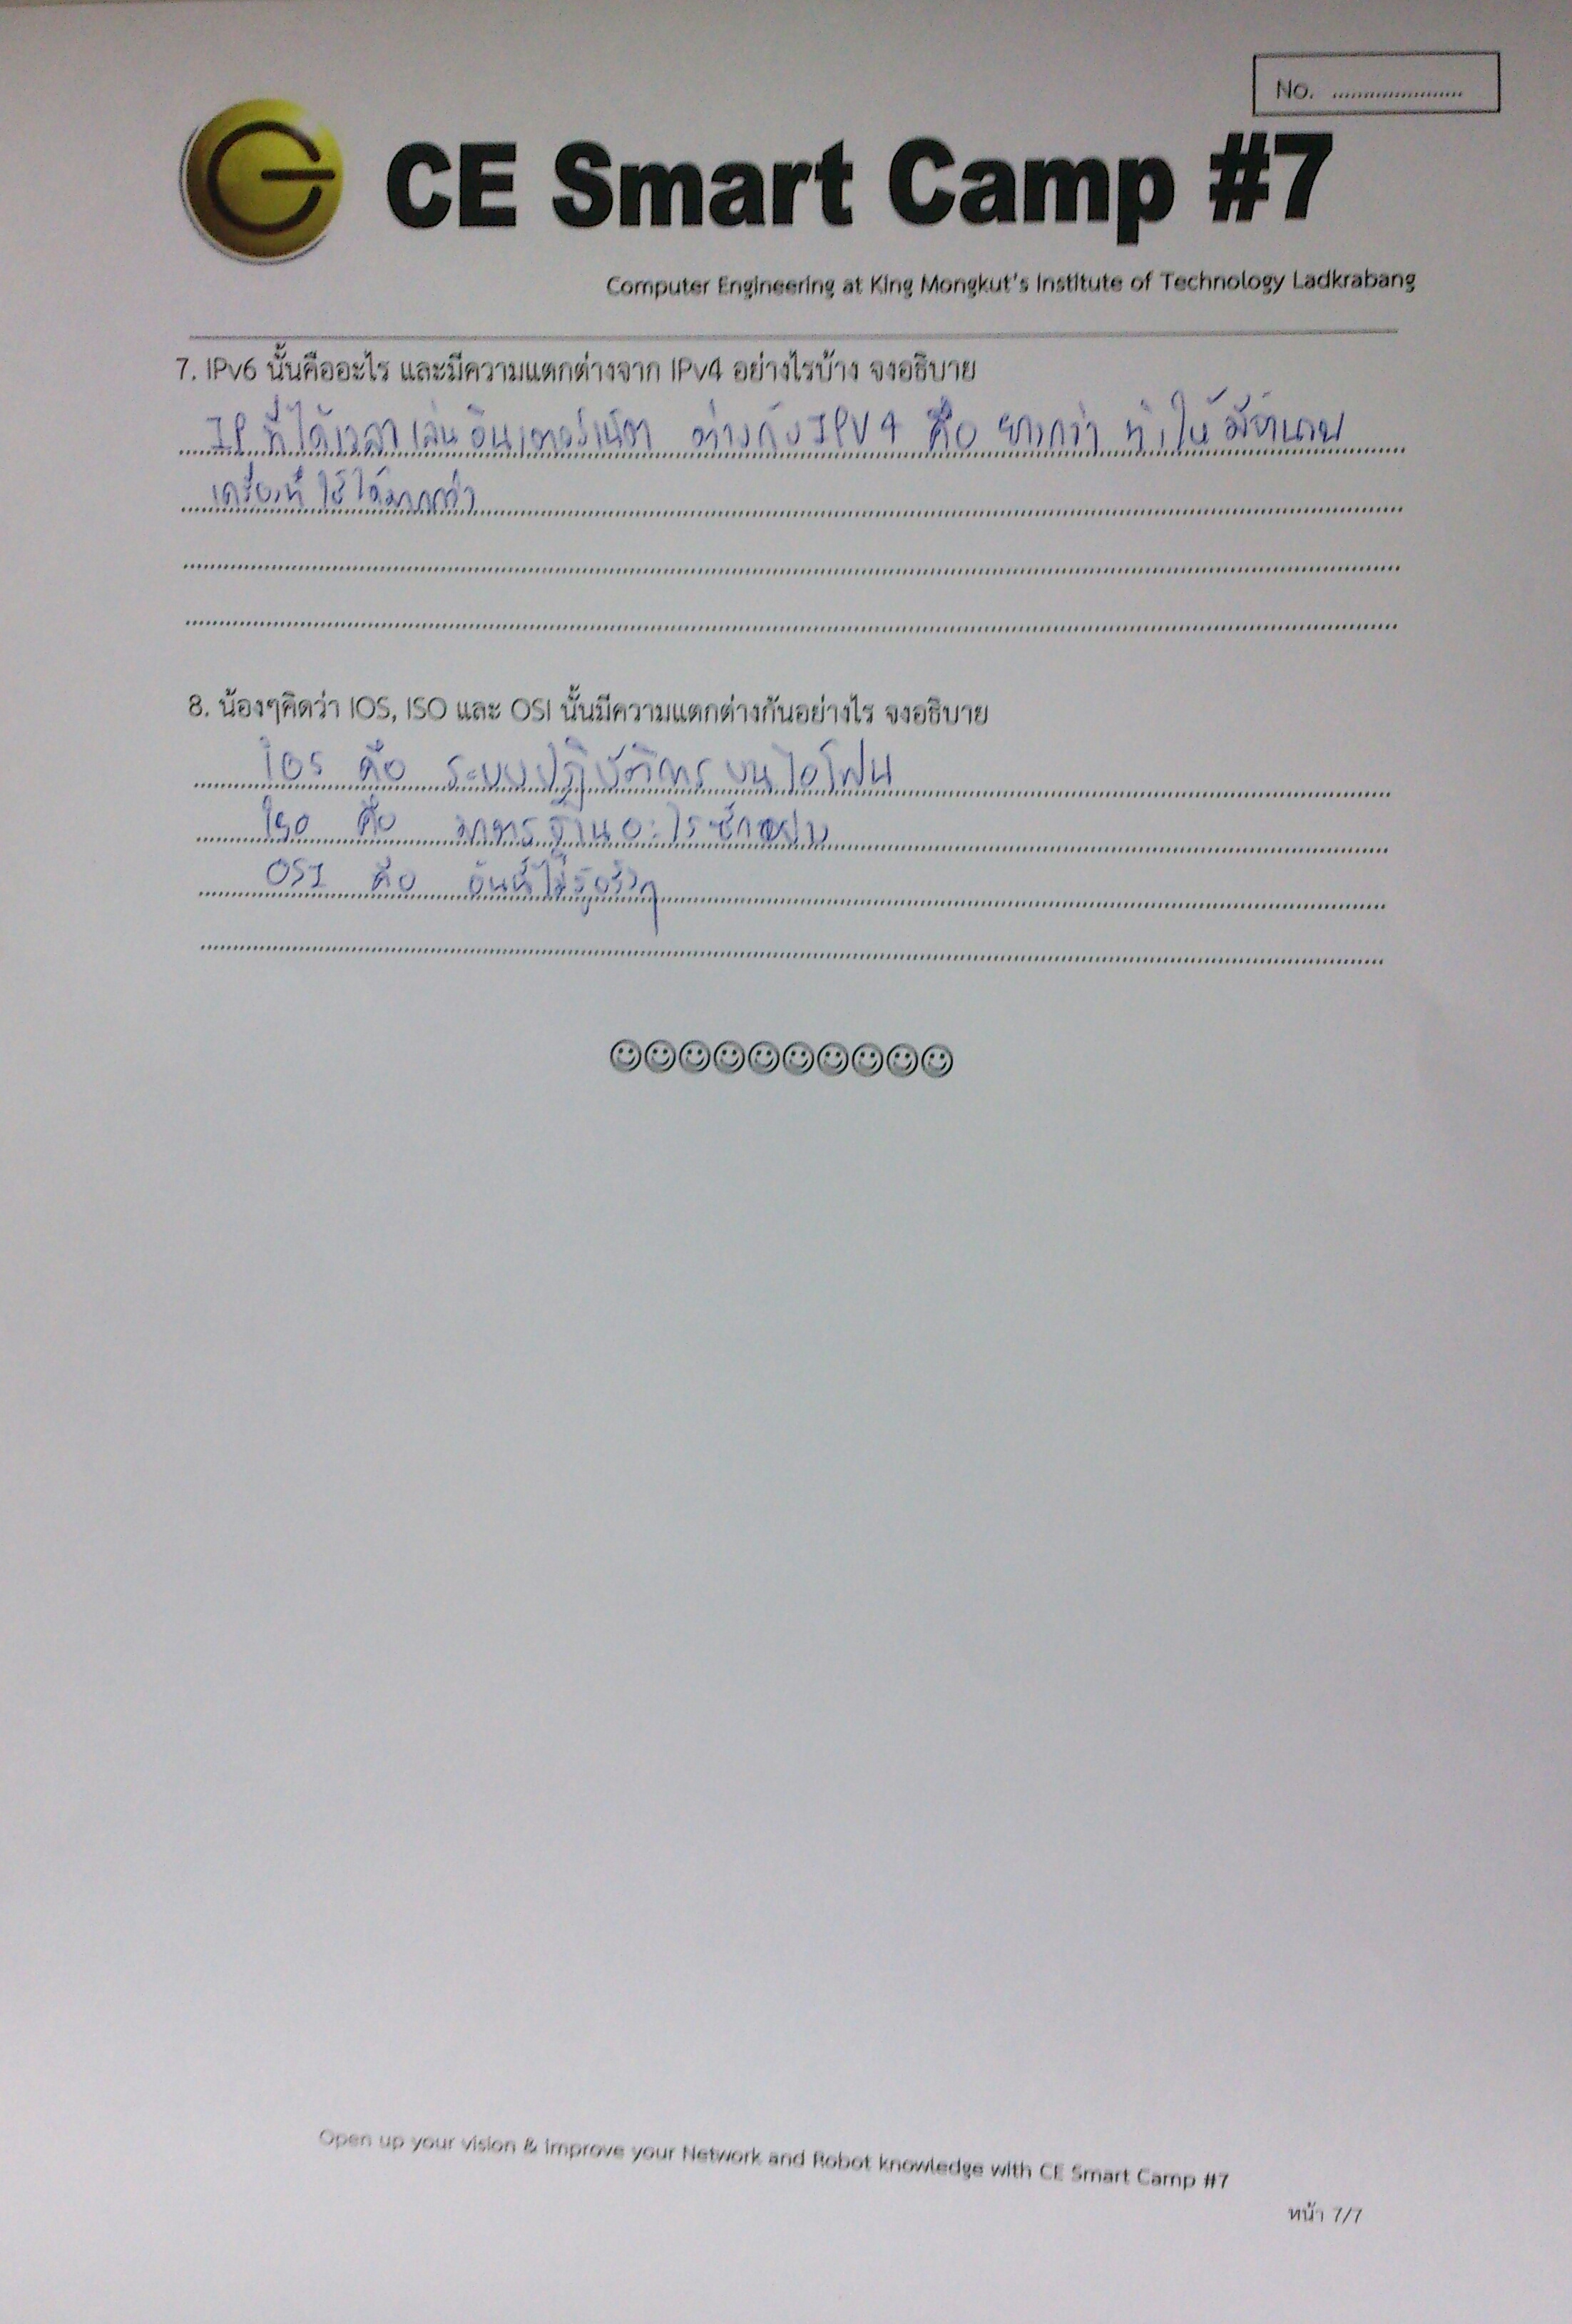 No. ......................
CE Smart Camp #7
Computer Engineering at King Mongkut's Institute of Technology Ladkrabang
7. IPv6 นั้นคืออะไร และมีความแตกต่างจาก IPv4 อย่างไรบ้าง จงอธิบาย
IP ที่ได้เวลาเล่นอินเตอร์เน็ต ต่างกับ IPV4 คือ ยาวกว่า ทำให้มีจำนวน
เครื่องที่ใช้ได้มากกว่า
8. น้องๆคิดว่า IOS, ISO และ OSI นั้นมีความแตกต่างกันอย่างไร จงอธิบาย
ios คือ ระบบปฏิบัติการบนไอโฟน
iso คือ มาตรฐานอะไรซักอย่าง
OSI คือ อันนี้ไม่รู้จริงๆ
☺☺☺☺☺☺☺☺☺☺
Open up your vision & improve your Network and Robot knowledge with CE Smart Camp #7
หน้า 7/7